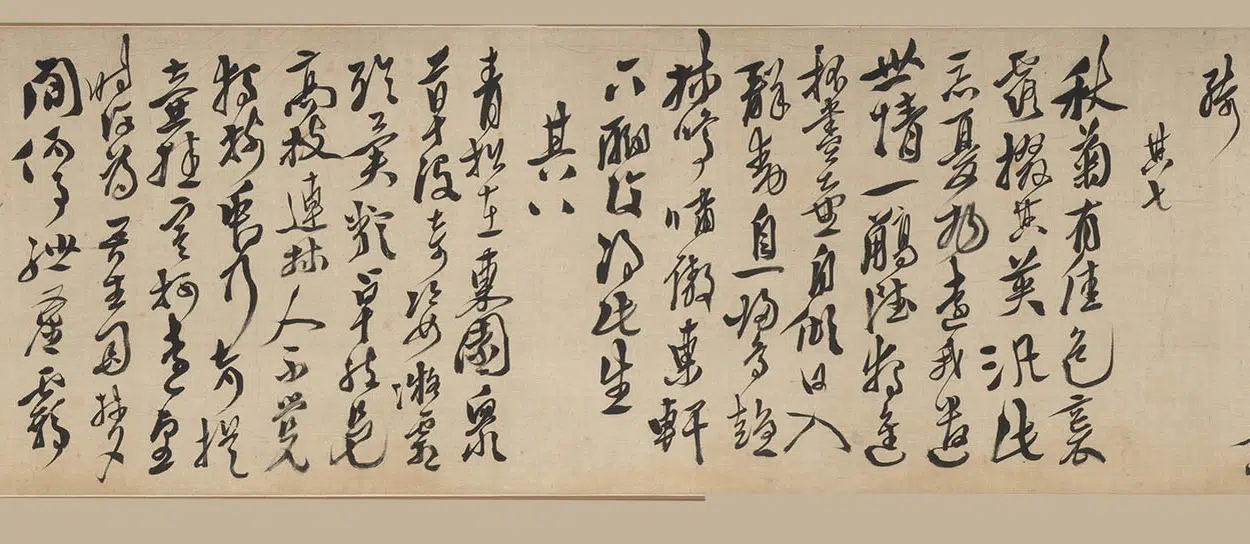 綺
其七
秋菊有佳色裛
露掇其英汎此
忘憂物遠我遺
世情一觴雖獨進
杯盡壺自傾日入
群動息歸鳥趨
林鳴嘯傲東軒
下聊復得此生
其八
青松在東園衆
草沒奇姿凝霜
殄異類卓然見
高枝連林人不覺
獨樹衆乃奇提
壺挂寒柯遠望
時復為吾生夢幻
間何事紲塵羈